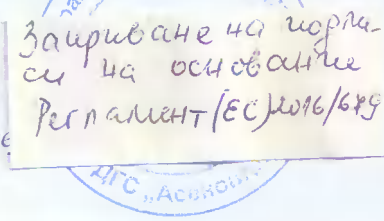 Закриване на подпи-
си на основание
Регламент (ЕС) 2016/679
ДГС „Асенов